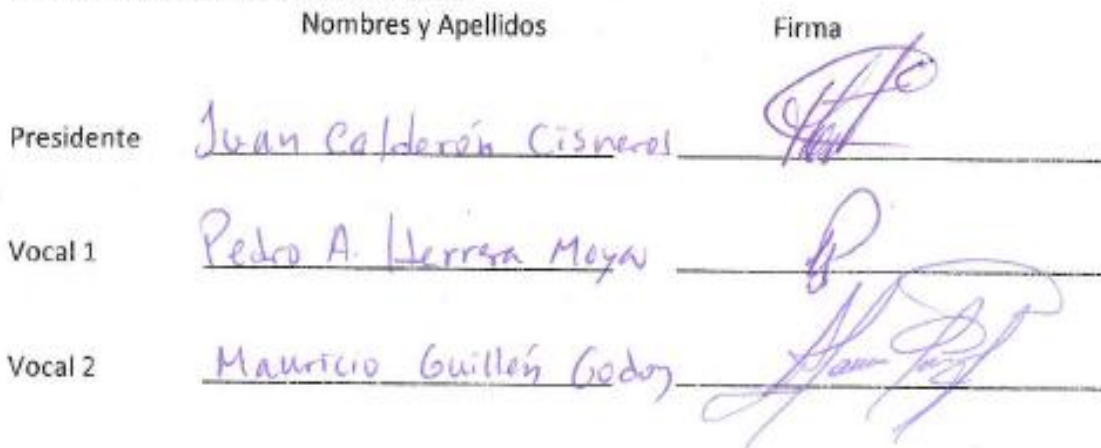 Nombres y Apellidos Firma
Presidente Juan Calderón Cisneros
Vocal 1 Pedro A. Herrera Moya
Vocal 2 Mauricio Guillén Godoy